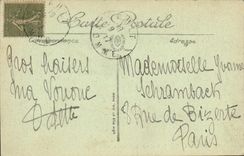 Carte Postale
Correspondance
Adresse
Gros baisers
ma Yvonne
Odette
Mademoiselle Yvonne
Schrambach
8 Rue de Bizerte
Paris